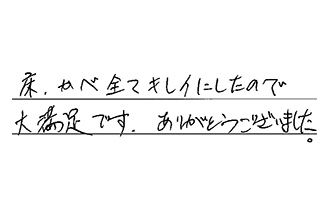 床、かべ全てキレイにしたので
大満足です。ありがとうございました。